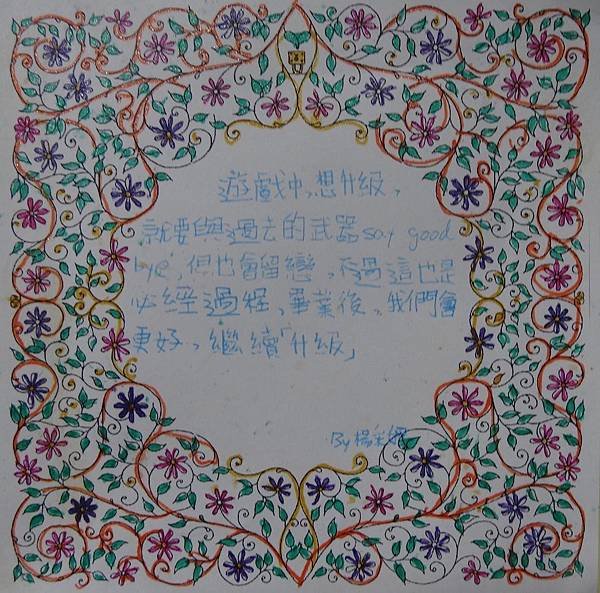 遊戲中,想升級,
就要與過去的武器say good
bye,但也會留戀,不過這也是
必經過程,畢業後,我們會
更好,繼續「升級」
By楊